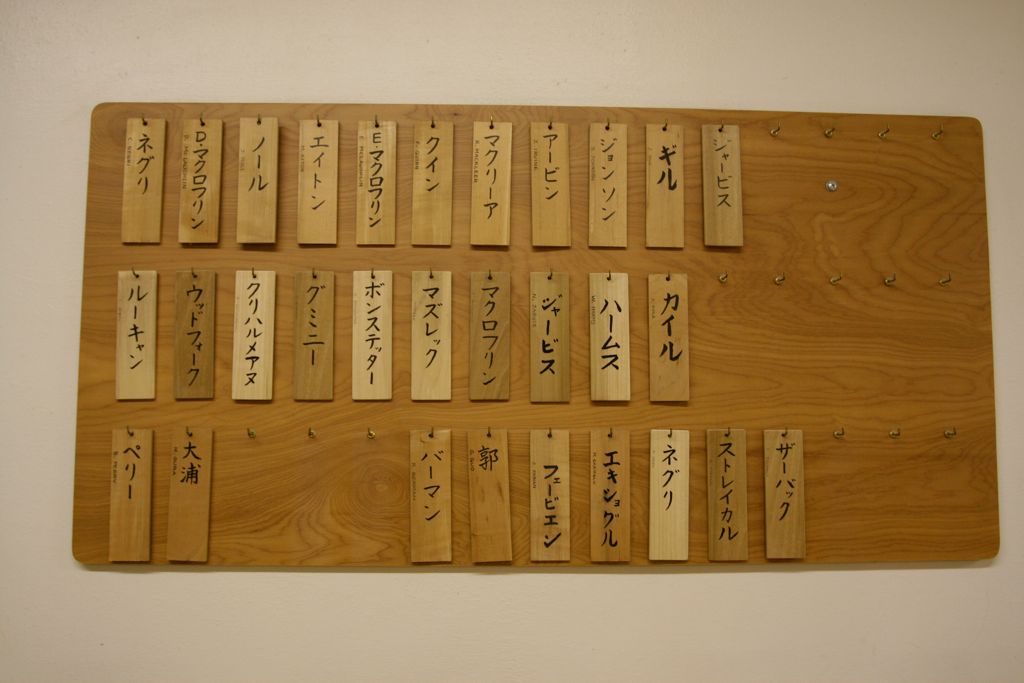 ネグリ
D・マクロフリン
ノール
エイトン
E・マクロフリン
クイン
マクリーア
アービン
ジョンソン
ギル
ジャービス
ルーキャン
ウッドフォーク
クリハルメアヌ
グミニー
ボンステッター
マズレック
マクロフリン
ジャービス
ハームス
カイル
ペリー
大浦
バーマン
郭
フェービエン
エキショグル
ネグリ
ストレイカル
ザーバック